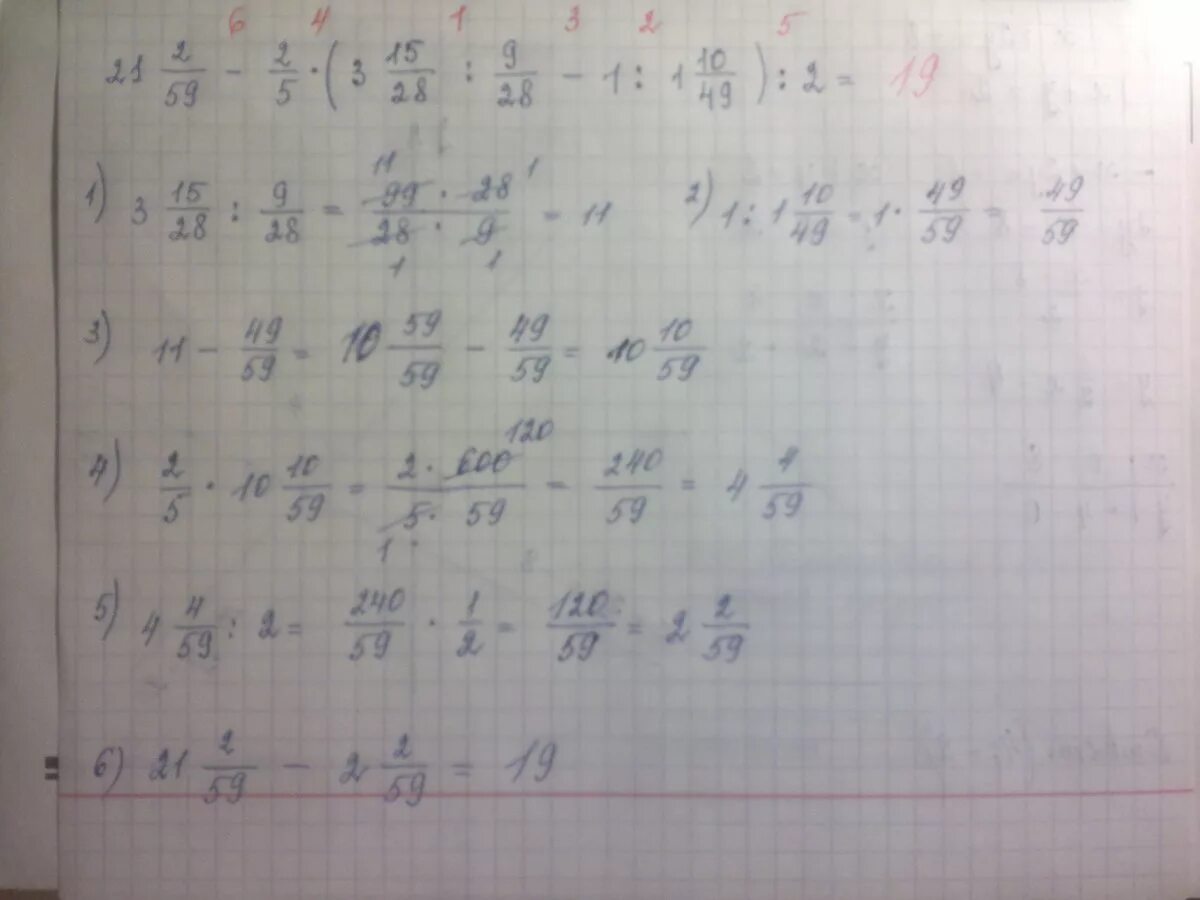 6 4 1 3 2 5
21 2/59 - 2/5 · (3 15/28 : 9/28 - 1 : 1 10/49) : 2 = 19
11 1
1) 3 15/28 : 9/28 = 99 · 28 / 28 · 9 = 11 2) 1 : 1 10/49 = 1 · 49/59 = 49/59
1 1
3) 11 - 49/59 = 10 59/59 - 49/59 = 10 10/59
120
4) 2/5 · 10 10/59 = 2 · 600 / 5 · 59 = 240/59 = 4 4/59
1
5) 4 4/59 : 2 = 240/59 · 1/2 = 120/59 = 2 2/59
6) 21 2/59 - 2 2/59 = 19